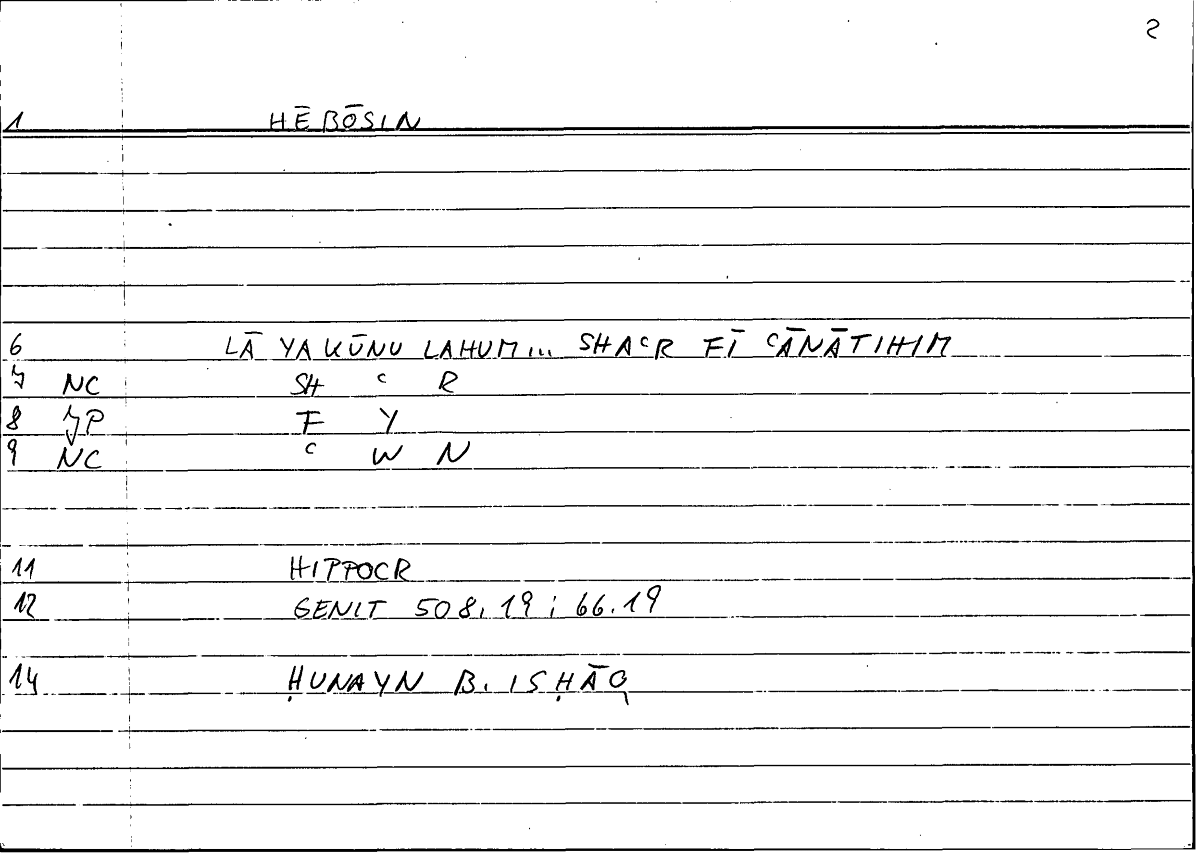 2
1 HĒBŌSIN
6 LĀ YAKŪNU LAHUM... SHAᶜR FĪ ᶜĀNĀTIHIM
7 NC SH ᶜ R
8 JP F Y
9 NC ᶜ W N
11 HIPPOCR
12 GENIT 508.19; 66.19
14 ḤUNAYN B. ISḤĀQ